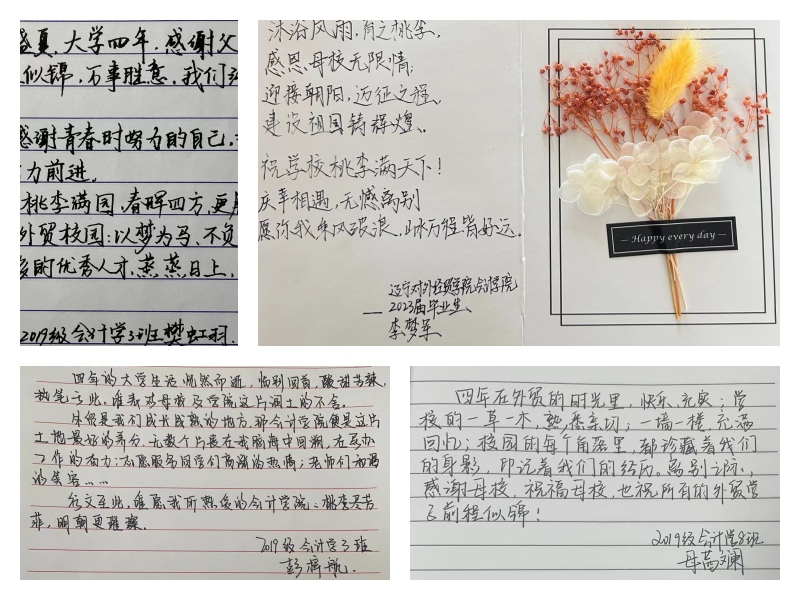 盛夏,大学四年,感谢父
似锦,万事胜意,我们
感谢青春时努力的自己,
力前进。
桃李满园,春晖四方,更
外贸校园:以梦为马,不负
的优秀人才,蒸蒸日上,
2019级会计学3班樊虹羽.
沐浴风雨,育之桃李,
感恩母校无限情;
迎接朝阳,迈征之程、
建设祖国铸辉煌、
祝学校桃李满天下!
庆幸相遇,无憾离别
愿你我乘风破浪,山水万程皆好运。
辽宁对外经贸学院会计学院
——2023届毕业生
李梦军
— Happy every day —
四年的大学生活恍然而逝,临别回首,酸甜苦辣,
执笔至此,唯我对母校及学院这片润土的不舍。
母校是我们成长成熟的地方,那会计学院便是这片
土地最好的养分,无数个片段在我脑海中回溯,在
工作的有力;志愿服务同学们高涨的热情;老师们和蔼
的笑容……
行文至此,唯愿我所热爱的会计学院:桃李尽芳
菲,明朝更璀璨。
2019级会计学3班
彭梓航.
四年在外贸的时光里,快乐、充实;学
校的一草一木,熟悉亲切;一墙一楼,充满
回忆;校园的每个角落里,都珍藏着我们
的身影,印记着我们的经历。离别之际,
感谢母校,祝福母校,也祝所有的外贸学
子前程似锦!
2019级会计学8班
母芮斓